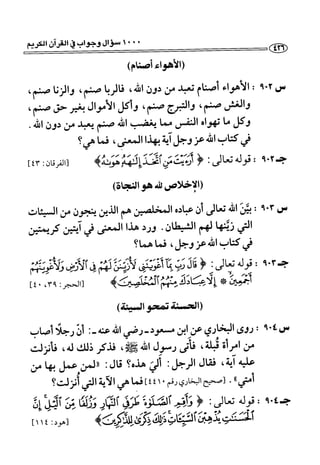 ١٠٠٠ سؤال وجواب في القرآن الكريم
٤٢٦
(الأهواء أصنام)
س ٩٠٢ : الأهواء أصنام تعبد من دون الله، فالربا صنم، والزنا صنم،
والغش صنم، والتبرج صنم، وأكل الأموال بغير حق صنم،
وكل ما تهواه النفس مما يغضب الله صنم يعبد من دون الله.
في كتاب الله عز وجل آية بهذا المعنى، فما هي؟
جـ٩٠٢ : قوله تعالى: ﴿ أَرَءَيْتَ مَنِ ٱتَّخَذَ إِلَٰهَهُۥ هَوَىٰهُ ﴾ [الفرقان: ٤٣]
(الإخلاص لله هو النجاة)
س ٩٠٣ : بيَّن الله تعالى أن عباده المخلصين هم الذين ينجون من السيئات
التي زيَّنها لهم الشيطان. ورد هذا المعنى في آيتين كريمتين
في كتاب الله عز وجل، فما هما؟
جـ٩٠٣ : قوله تعالى: ﴿ قَالَ رَبِّ بِمَآ أَغْوَيْتَنِى لَأُزَيِّنَنَّ لَهُمْ فِى ٱلْأَرْضِ وَلَأُغْوِيَنَّهُمْ
أَجْمَعِينَ * إِلَّا عِبَادَكَ مِنْهُمُ ٱلْمُخْلَصِينَ ﴾ [الحجر: ٣٩، ٤٠]
(الحسنة تمحو السيئة)
س ٩٠٤ : روى البخاري عن ابن مسعود-رضي الله عنه-: أنَّ رجلًا أصاب
من امرأة قُبلة، فأتى رسول الله ﷺ، فذكر ذلك له، فأنزلت
عليه آية، فقال الرجل: أليَ هذه؟ قال: «لمن عمل بها من
أمتي». [صحيح البخاري رقم ٤٤١٠] فما هي الآية التي أُنزلت؟
جـ٩٠٤ : قوله تعالى: ﴿ وَأَقِمِ ٱلصَّلَوٰةَ طَرَفَىِ ٱلنَّهَارِ وَزُلَفًا مِّنَ ٱلَّيْلِ ۚ إِنَّ
ٱلْحَسَنَٰتِ يُذْهِبْنَ ٱلسَّيِّـَٔاتِ ۚ ذَٰلِكَ ذِكْرَىٰ لِلذَّٰكِرِينَ ﴾ [هود: ١١٤]